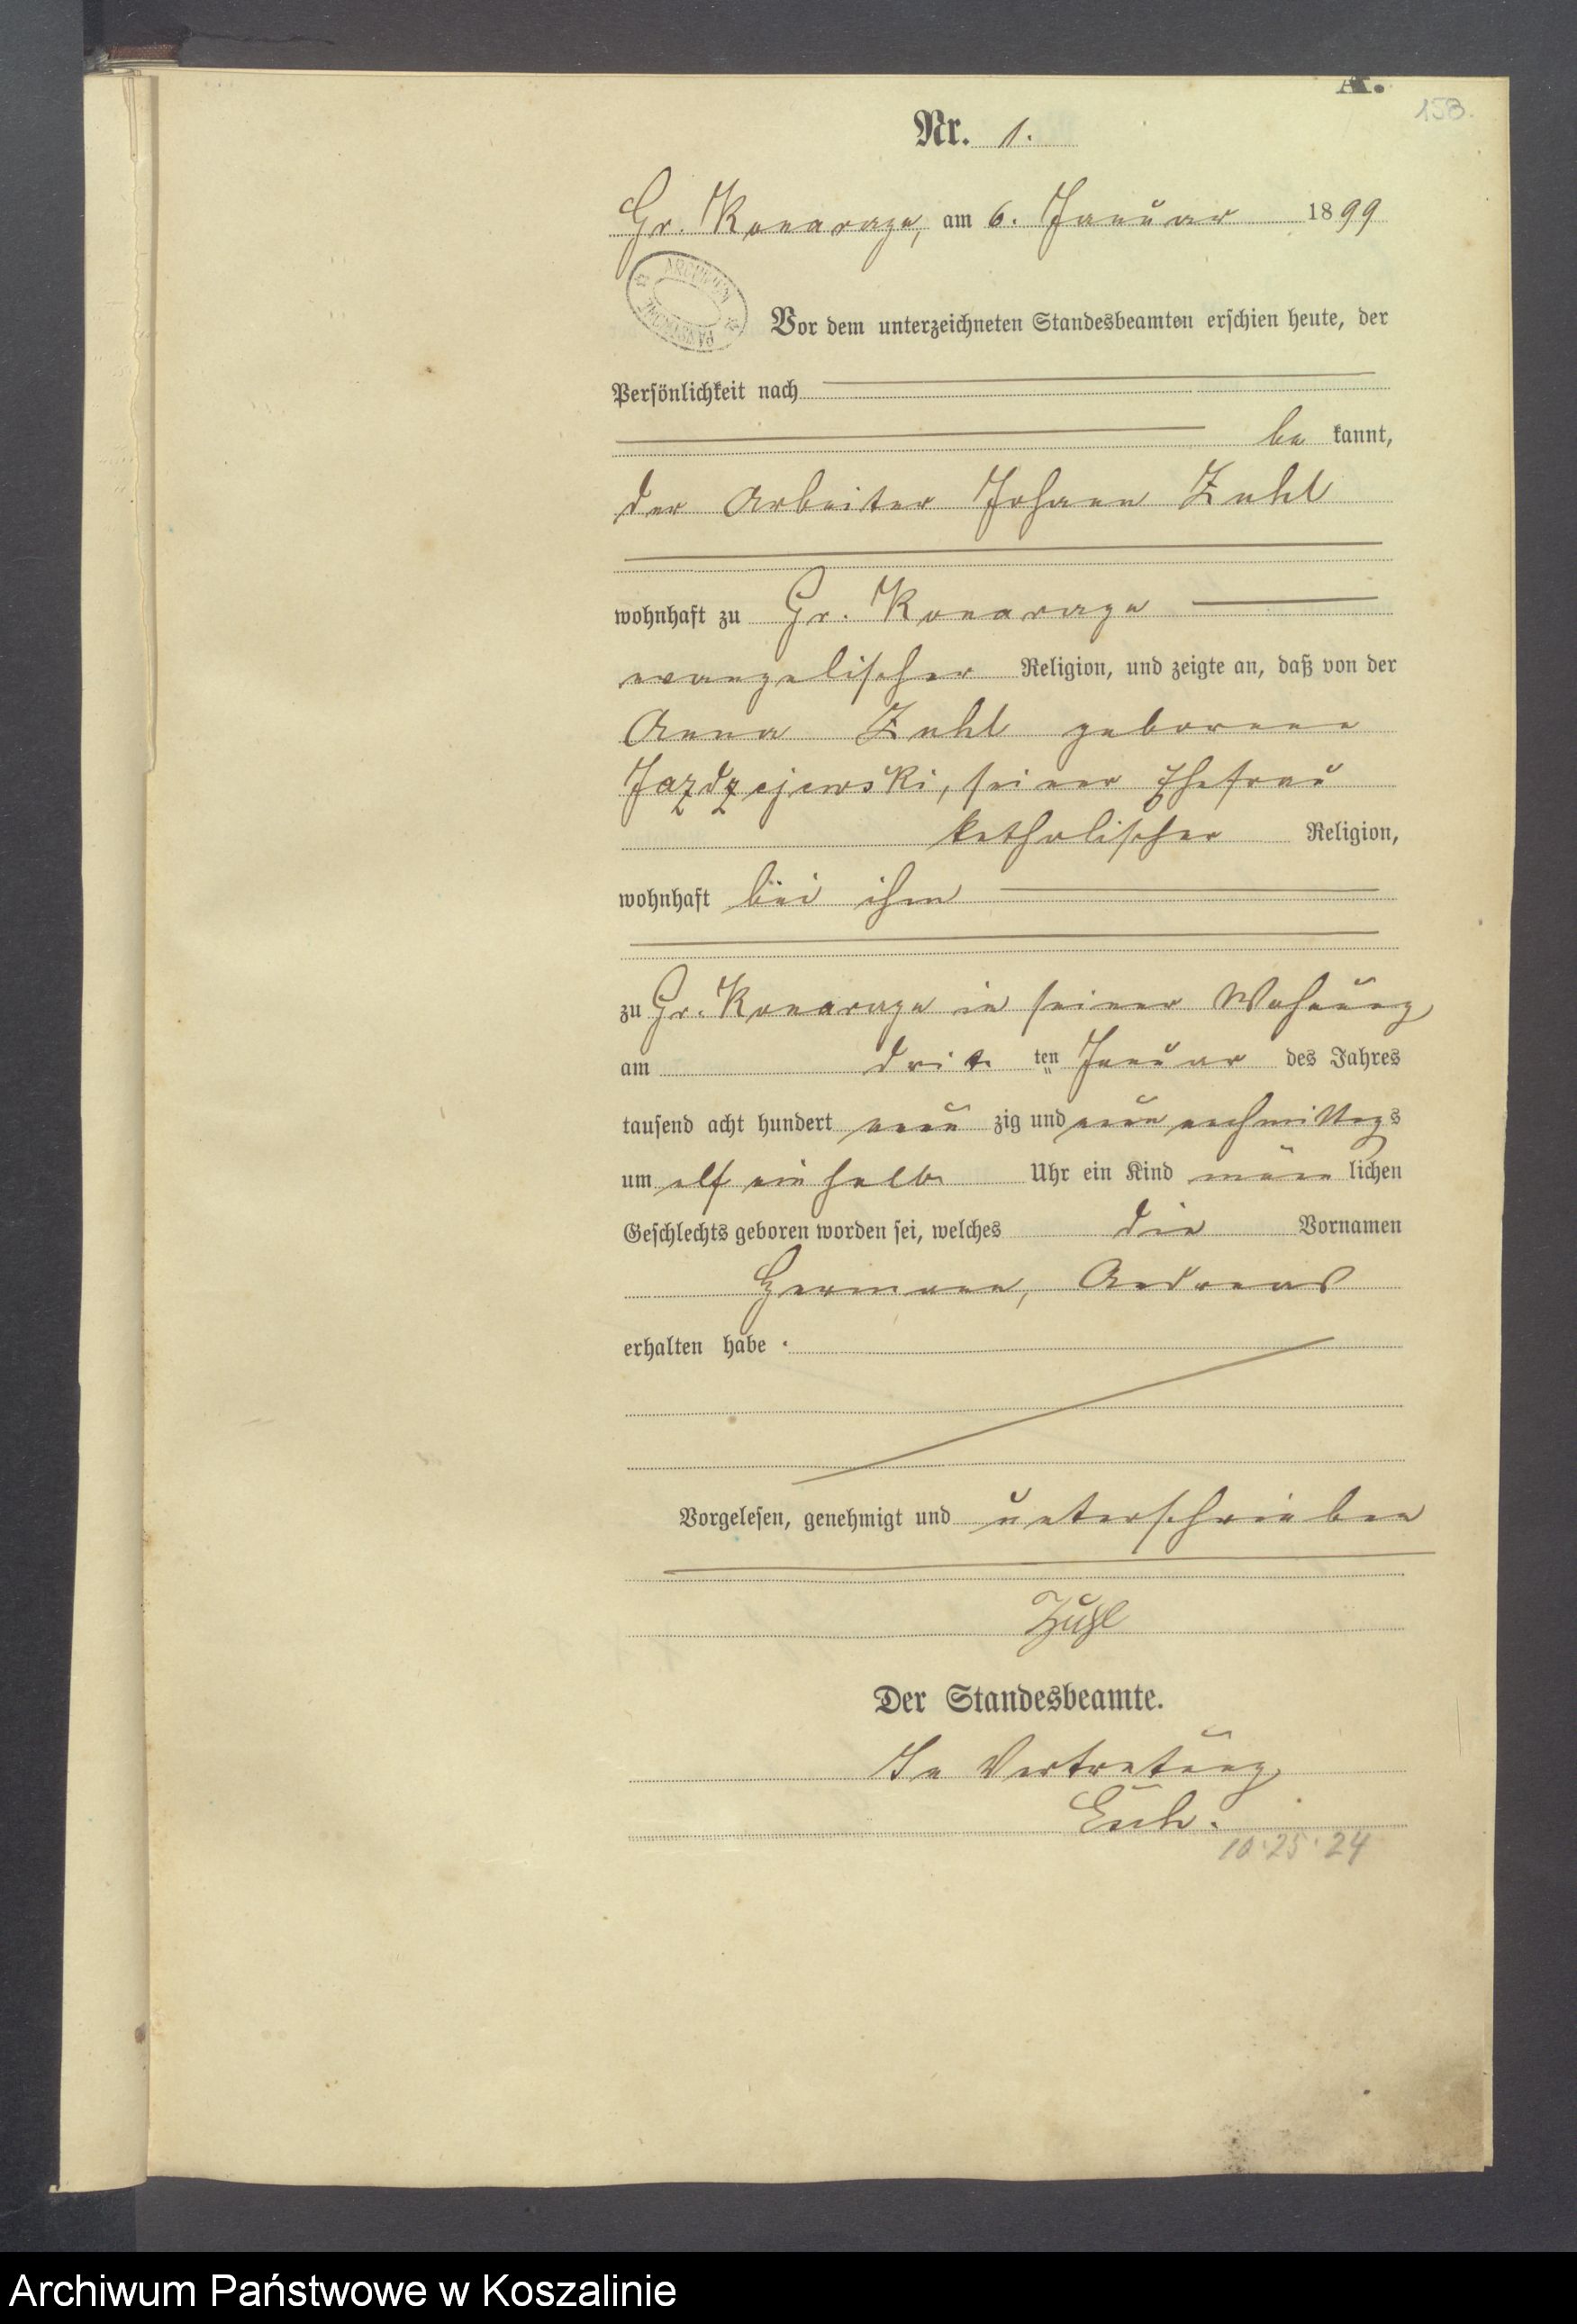 A.
158.
Nr. 1.
Gr. Konarzyn, am 6. Januar 1899
ARCHIWUM PAŃSTWOWE
Vor dem unterzeichneten Standesbeamten erschien heute, der
Persönlichkeit nach
be kannt,
der Arbeiter Johann Zuhl
wohnhaft zu Gr. Konarzyn
evangelischer Religion, und zeigte an, daß von der
Anna Zuhl geborene
Jazdzejewski, seiner Ehefrau
katholischer Religion,
wohnhaft bei ihm
zu Gr. Konarzyn in seiner Wohnung
am drit ten Januar des Jahres
tausend acht hundert neun zig und neun nachmittags
um elf ein halb Uhr ein Kind männ lichen
Geschlechts geboren worden sei, welches die Vornamen
Hermann, Andreas
erhalten habe.
Vorgelesen, genehmigt und unterschrieben
Zuhl
Der Standesbeamte.
In Vertretung
10.25.24
Archiwum Państwowe w Koszalinie